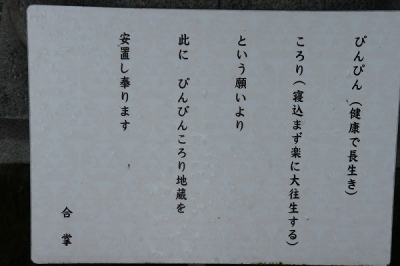 ぴんぴん（健康で長生き）
ころり（寝込まず楽に大往生する）
という願いより
此に　ぴんぴんころり地蔵を
安置し奉ります
合掌